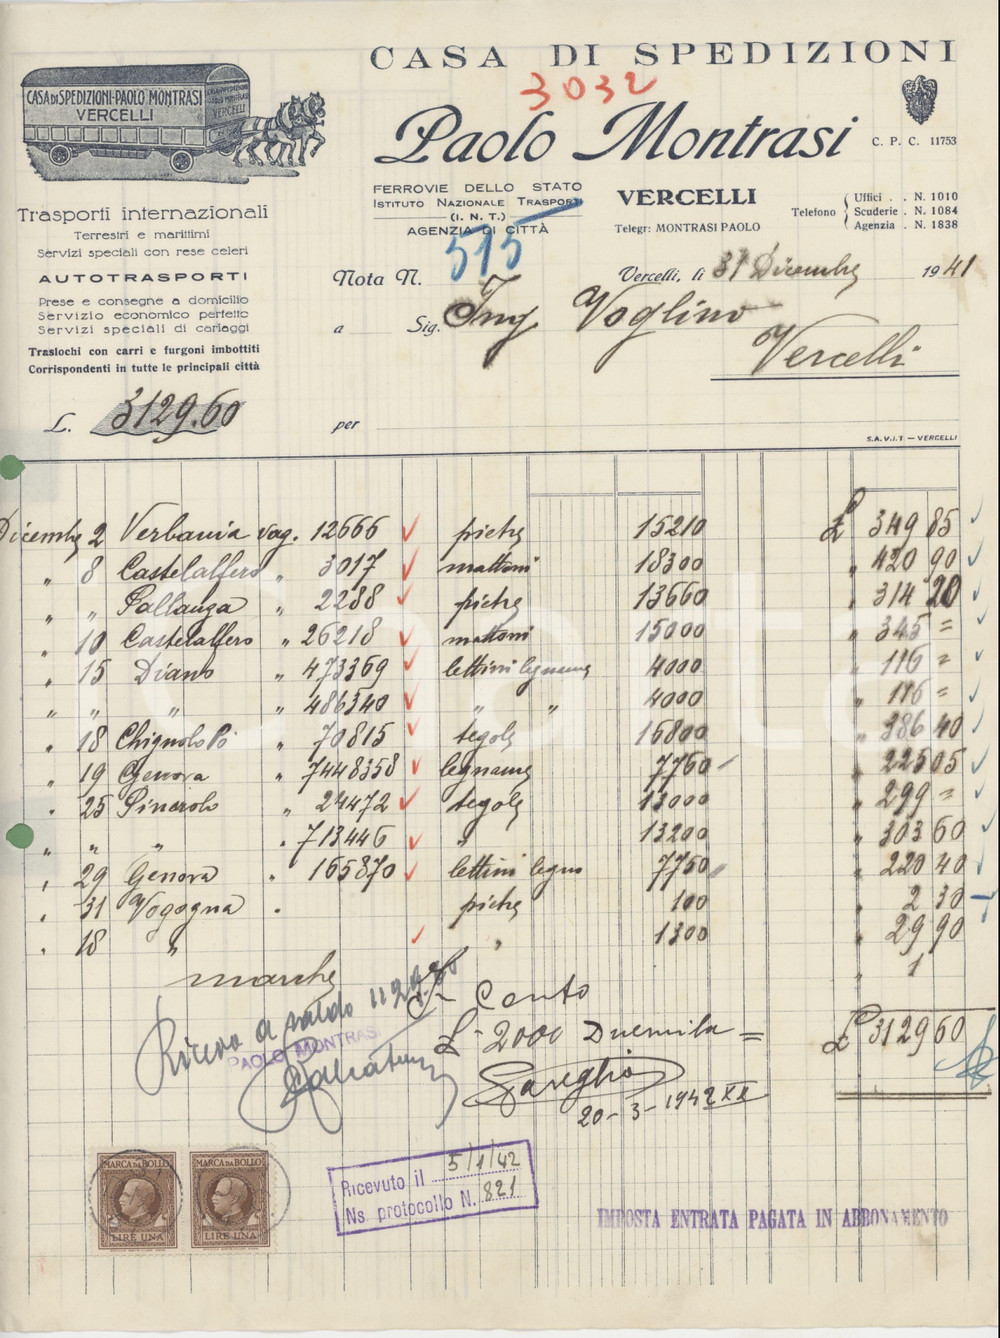 CASA DI SPEDIZIONI
3032
CASA DI SPEDIZIONI-PAOLO MONTRASI
VERCELLI
Paolo Montrasi
C. P. C. 11753
FERROVIE DELLO STATO
ISTITUTO NAZIONALE TRASPORTI
(I. N. T.)
AGENZIA DI CITTÀ
VERCELLI
Telegr: MONTRASI PAOLO
Telefono
Uffici . . N. 1010
Scuderie . N. 1084
Agenzia . N. 1838
Trasporti internazionali
Terrestri e marittimi
Servizi speciali con rese celeri
AUTOTRASPORTI
Prese e consegne a domicilio
Servizio economico perfetto
Servizi speciali di cariaggi
Traslochi con carri e furgoni imbottiti
Corrispondenti in tutte le principali città
Nota N. 515
Vercelli, li 31 Dicembre 1941
a Sig. Ing. Voglino
Vercelli
L. 3129.60
per
S.A.V.I.T — VERCELLI
Dicembre 2 Verbania vag. 12666 pietre 15210 £ 349 85
" 8 Castelalfero " 3017 mattoni 18300 " 420 90
" " Pallanza " 2288 pietre 13660 " 314 20
" 10 Castelalfero " 26218 mattoni 15000 " 345 =
" 15 Diano " 473369 lettini legname 4000 " 116 =
" " " " 486340 " " 4000 " 116 =
" 18 Chignolo Po " 70815 tegole 16800 " 386 40
" 19 Genova " 7448358 legname 7760 " 225 05
" 25 Pinerolo " 24472 tegole 13000 " 299 =
" " " " 713446 " 13200 " 303 60
" 29 Genova " 165870 lettini legno 7750 " 220 40
" 31 Vogogna " pietre 100 " 2 30
" 18 " " 1300 " 29 90
marche " 1
£ 3129 60
Ricevo a saldo 1129.60
PAOLO MONTRASI
Conto
£ 2000 Duemila =
20-3-1942 XX
MARCA DA BOLLO
LIRE UNA
MARCA DA BOLLO
LIRE UNA
Ricevuto il 5/1/42
Ns. protocollo N. 821
IMPOSTA ENTRATA PAGATA IN ABBONAMENTO